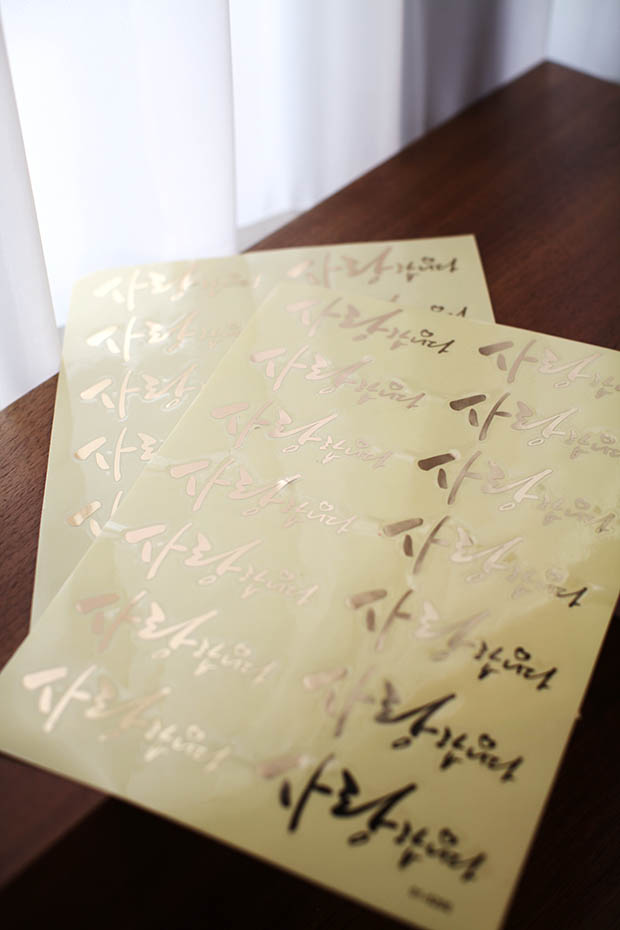 사랑합니다 사랑합니다
사랑합니다
사랑
사랑
사랑합니다 사랑합니다
사랑합니다 사랑합니다
사랑합니다 사랑합니다
사랑합니다 사랑합니다
사랑합니다 사랑합니다
사랑합니다 사랑합니다
사랑합니다 사랑합니다